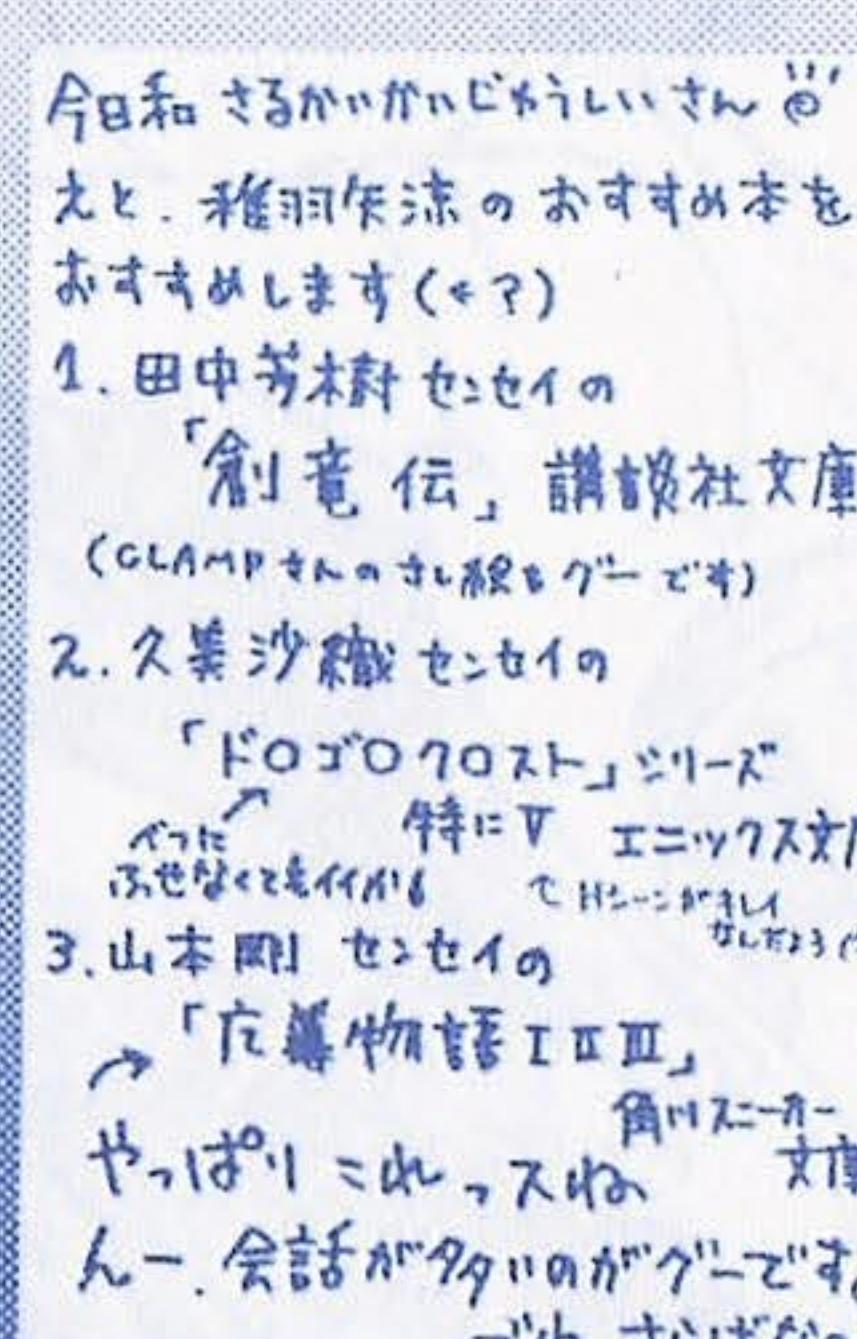 今日和 さるかいがいじゅうしいさん
えと. 稚羽矢涼のおすすめ本を
おすすめします(←?)
1. 田中芳樹センセイの
「創竜伝」講談社文庫
(CLAMPさんのさし絵もグーです)
2. 久美沙織センセイの
「ドロゴロクロスト」シリーズ
べつに
ふせなくてもイイかも
特にV エニックス文
でHシーンがキレイ
なんだよう
3. 山本剛 センセイの
「応募物語ⅠⅡⅢ」
角川スニーカー
文庫
やっぱりこれっスね
んー. 会話が多いのがグーです。